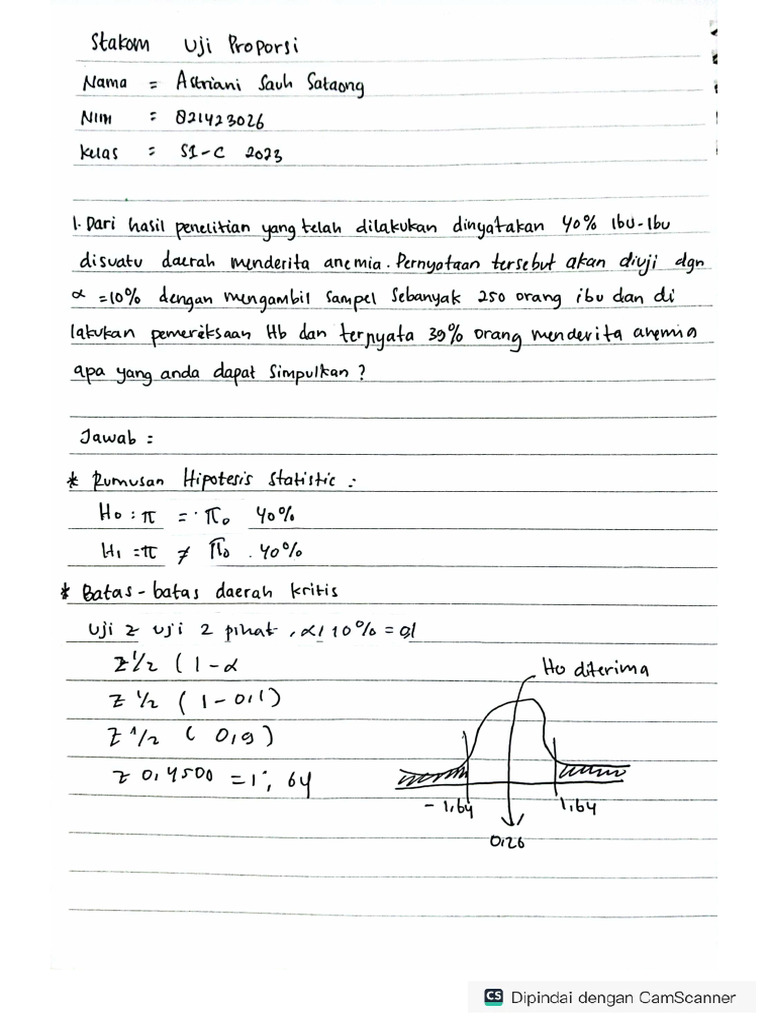 Stakom Uji Proporsi
Nama = Astriani Sauh Sataong
NIM : 821423026
Kelas : S1-C 2023
1. Dari hasil penelitian yang telah dilakukan dinyatakan 40% Ibu-Ibu
disuatu daerah menderita anemia. Pernyataan tersebut akan diuji dgn
α =10% dengan mengambil sampel sebanyak 250 orang ibu dan di
lakukan pemereksaan Hb dan ternyata 39% orang menderita anemia
apa yang anda dapat simpulkan ?
Jawab :
* Rumusan Hipotesis Statistic :
Ho : π = π₀ 40%
H₁ = π ≠ π₀ . 40%
* Batas-batas daerah kritis
Uji z uji 2 pihat , α/ 10% = 0,1
Z ½ ( 1 - α
Z ½ ( 1 - 0,1 )
Z ½ ( 0,9 )
Z 0,4500 = 1, 64
Ho diterima
- 1,64
1,64
0,26
CS Dipindai dengan CamScanner